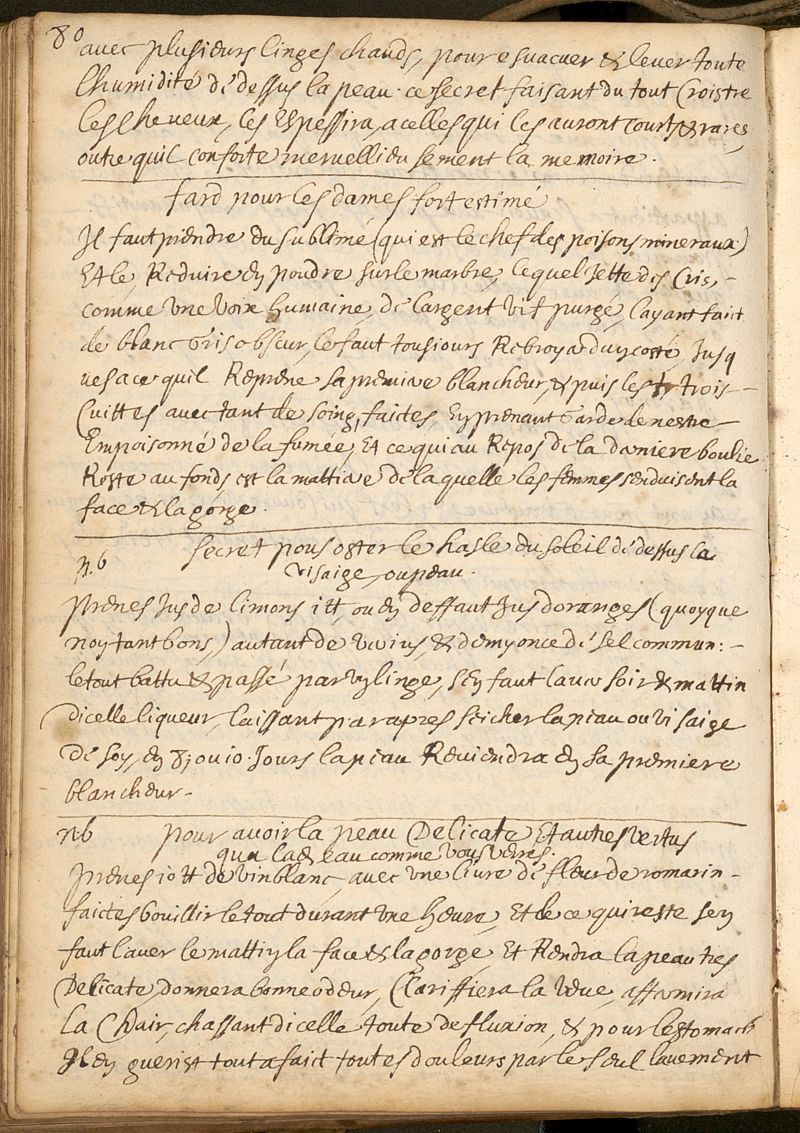 80
avec plusieurs linges chauds, pour esvacuer & lever toute
lhumidité de dessus la peau. ce secret faisant du tout Croistre
les cheveux, les Espessira, a celles qui les auront courts & rares
outre quil conforte mervellieusement la memoire.
fard pour les dames fort estimé
Il faut prendre du sublimé (qui est le chef des poisons mineraux)
Et le Reduire en poudre sur le marbre, lequel Jette des Cris,
comme une voix humaine, de largent vif purgé, layant faict
de blanc Gris obscur, le faut tousiours Rebroyer dun costé, Jusq
ues a ce quil Reprene sa premiere blancheur, & puis les trois
Cuittes avec tant de soing faictes, En prenant Garde de nestre
Empoisonné de la fumée, Et ce qui au Repos de la derniere boulie
Reste au fonds est la mattiere de laquelle les femmes senduisent la
face & la gorge.
n.b secret pour oster le hasle du soleil de dessus la
visaige, ou peau.
prenes Jus de limons i ℔, ou en deffaut Jus doranges (quoyque
noy tant bons,) autant de verius, & demy once de sel commun:
le tout battu & passé par un linge, sen faut laver soir & mattin
dicelle liqueur, laissant par apres seicher la peau ou visaige
de soy, en 8, ou 10. Jours la peau Reviendra en sa premiere
blancheur
nb pour avoir la peau Delicate Et autres vertus
qua ladte eau comme vous verres.
prenes 10 ℔ de vin blanc, avec une livre de fleur de romarin
faictes bouillir le tout durant une heure, Et de ce qui reste sen
faut laver le mattin la face & la gorge, Et Rendra la peau tres
Delicate, donnera bonne odeur, Clariffiera la veue, affermira
la Chair, chassant dicelle toute defluxion, & pour lestomach
Il en guerist tout a faict toutes douleurs par le seul lavement